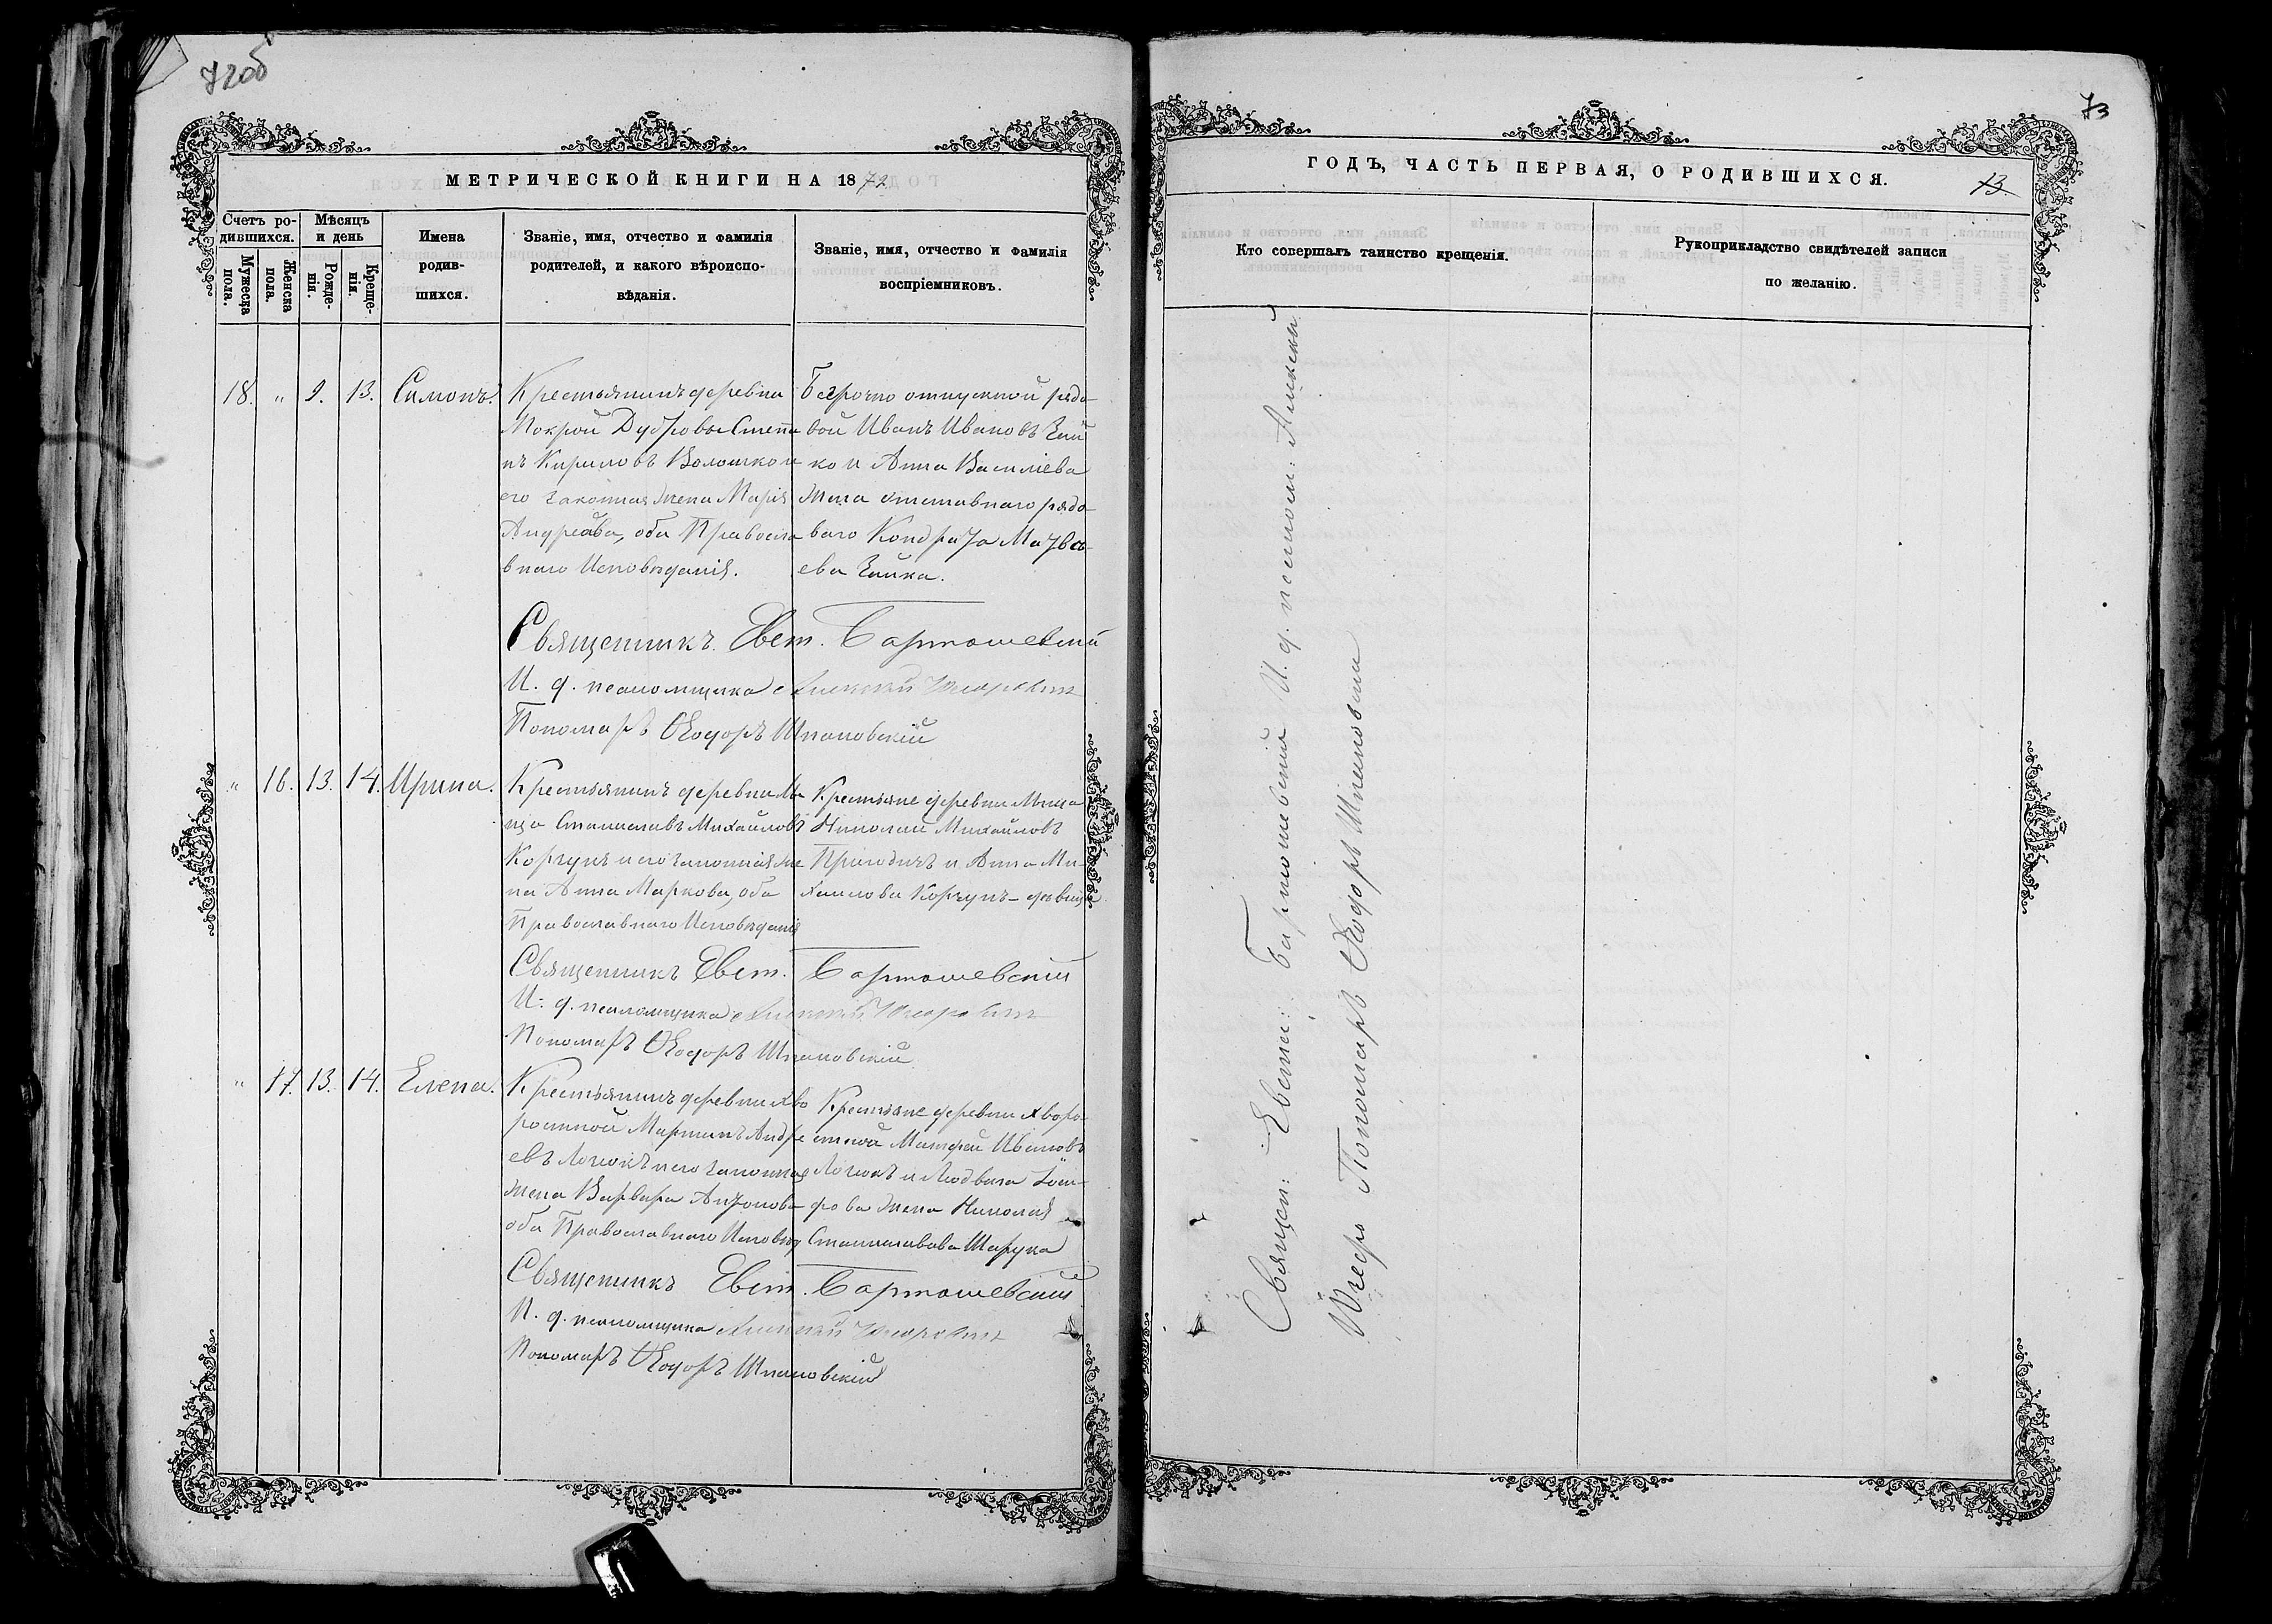 72об
МЕТРИЧЕСКОЙ КНИГИ НА 1872
Счетъ ро-
дившихся.
Мѣсяцъ
и день
Мужеска
пола.
Женска
пола.
Рожде-
нія.
Креще-
нія.
Имена
родив-
шихся.
Званіе, имя, отчество и фамилія
родителей, и какого вѣроиспо-
вѣданія.
Званіе, имя, отчество и фамилія
воспріемниковъ.
18. „ 9. 13. Симонъ.
Крестьянинъ деревни
Мокрой Дубровы Степа
нъ Кириловъ Волошко и
его законная жена Марія
Андреева, оба Правосла
внаго Исповѣданія.
Безсрочно отпускной рядо-
вой Иванъ Ивановъ Заи
ко и Анна Василіева
жена отставнаго рядо-
ваго Кондрата Матвѣ-
ева Заика.
Священникъ Евст. Бартошевскій
И. д. псаломщика
Пономарь Ѳеодоръ Шпаковскій
„ 16. 13. 14. Ирина.
Крестьянинъ деревни
Станиславъ Михайловъ
Корзунъ и его законная же
на Анна Маркова, оба
Православнаго Исповѣданія
Крестьяне деревни
Николай Михайловъ
и Анна Ми-
хаилова Корзунъ – дѣвица.
Священникъ Евст. Бартошевскій
И. д. псаломщика
Пономарь Ѳеодоръ Шпаковскій
„ 17. 13. 14. Елена.
Крестьянинъ деревни Хво
ростной Мартинъ Андре
евъ и его законная
жена Варвара Антонова
оба Православнаго Исповѣд
Крестьяне деревни Хворо-
стной Матфей Ивановъ
и Людвига Іоси-
фова жена Николая
Станиславова Шарука
Священникъ Евст. Бартошевскій
И. д. псаломщика
Пономарь Ѳеодоръ Шпаковскій
73
ГОДЪ, ЧАСТЬ ПЕРВАЯ, О РОДИВШИХСЯ.
13.
Кто совершалъ таинство крещенія.
Рукоприкладство свидѣтелей записи
по желанію.
Священ: Евста: Бартошевскій И. д. псалом: Алексѣй
Пономарь Ѳеодоръ Шпаковскій